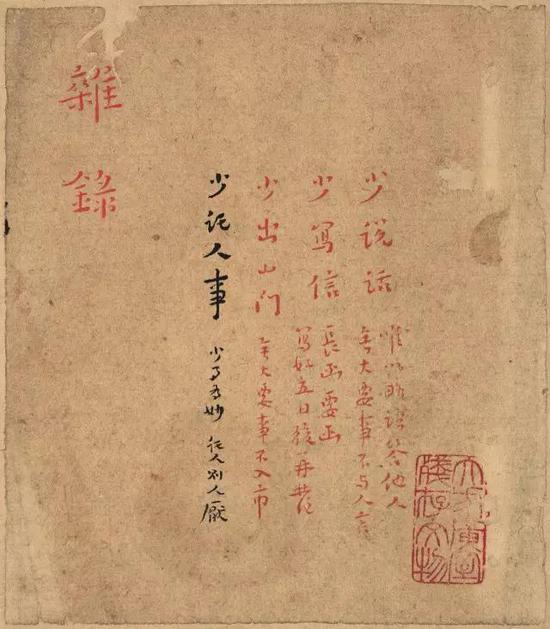 少说话
唯以 語答他人
無大要事不与人言
少寫信
長函要函
寫好五日後再發
少出山门
無大要事不入市
少託人事
少了為妙 託人别人厭
雜錄